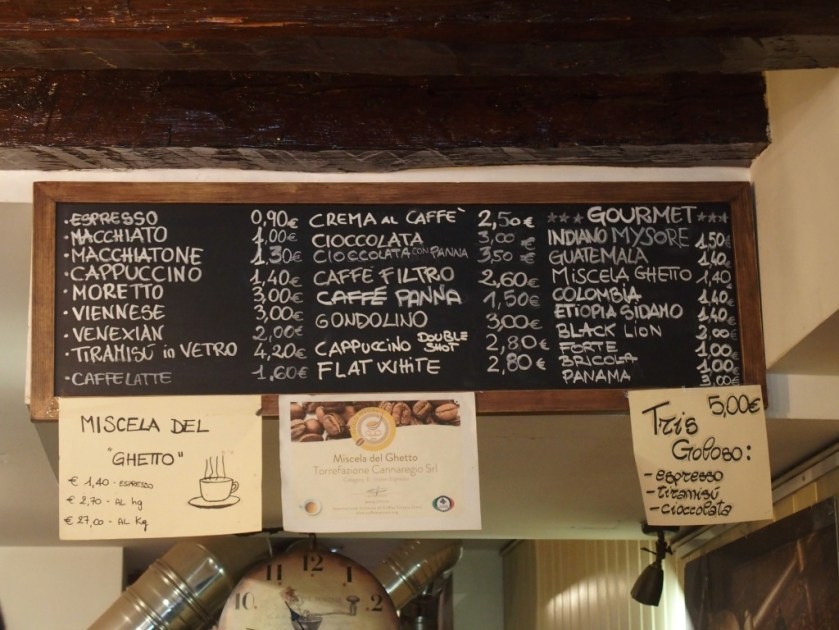 · ESPRESSO 0,90€
· MACCHIATO 1,00€
· MACCHIATONE 1,30€
· CAPPUCCINO 1,40€
· MORETTO 3,00€
· VIENNESE 3,00€
· VENEXIAN 2,00€
· TIRAMISÚ in VETRO 4,20€
· CAFFELATTE 1,60€
CREMA AL CAFFÈ 2,50€
CIOCCOLATA 3,00€
CIOCCOLATA CON PANNA 3,50€
CAFFÈ FILTRO 2,60€
CAFFÈ PANNA 1,50€
GONDOLINO 3,00€
CAPPUCCINO DOUBLE SHOT 2,80€
FLAT WHITE 2,80€
*** GOURMET ***
INDIANO MYSORE 1,50€
GUATEMALA 1,40
MISCELA GHETTO 1,40
COLOMBIA 1,40
ETIOPIA SIDAMO 1,40
BLACK LION 2,00€
FORTE 1,00
BRICOLA 1,00€
PANAMA 3,00€
MISCELA DEL
"GHETTO"
€ 1,40 - ESPRESSO
€ 2,70 - AL hg
€ 27,00 - AL Kg
Miscela del Ghetto
Torrefazione Cannaregio Srl
5,00€
Tris
Goloso:
- espresso
- tiramisú
- cioccolata
10 11 12 1 2